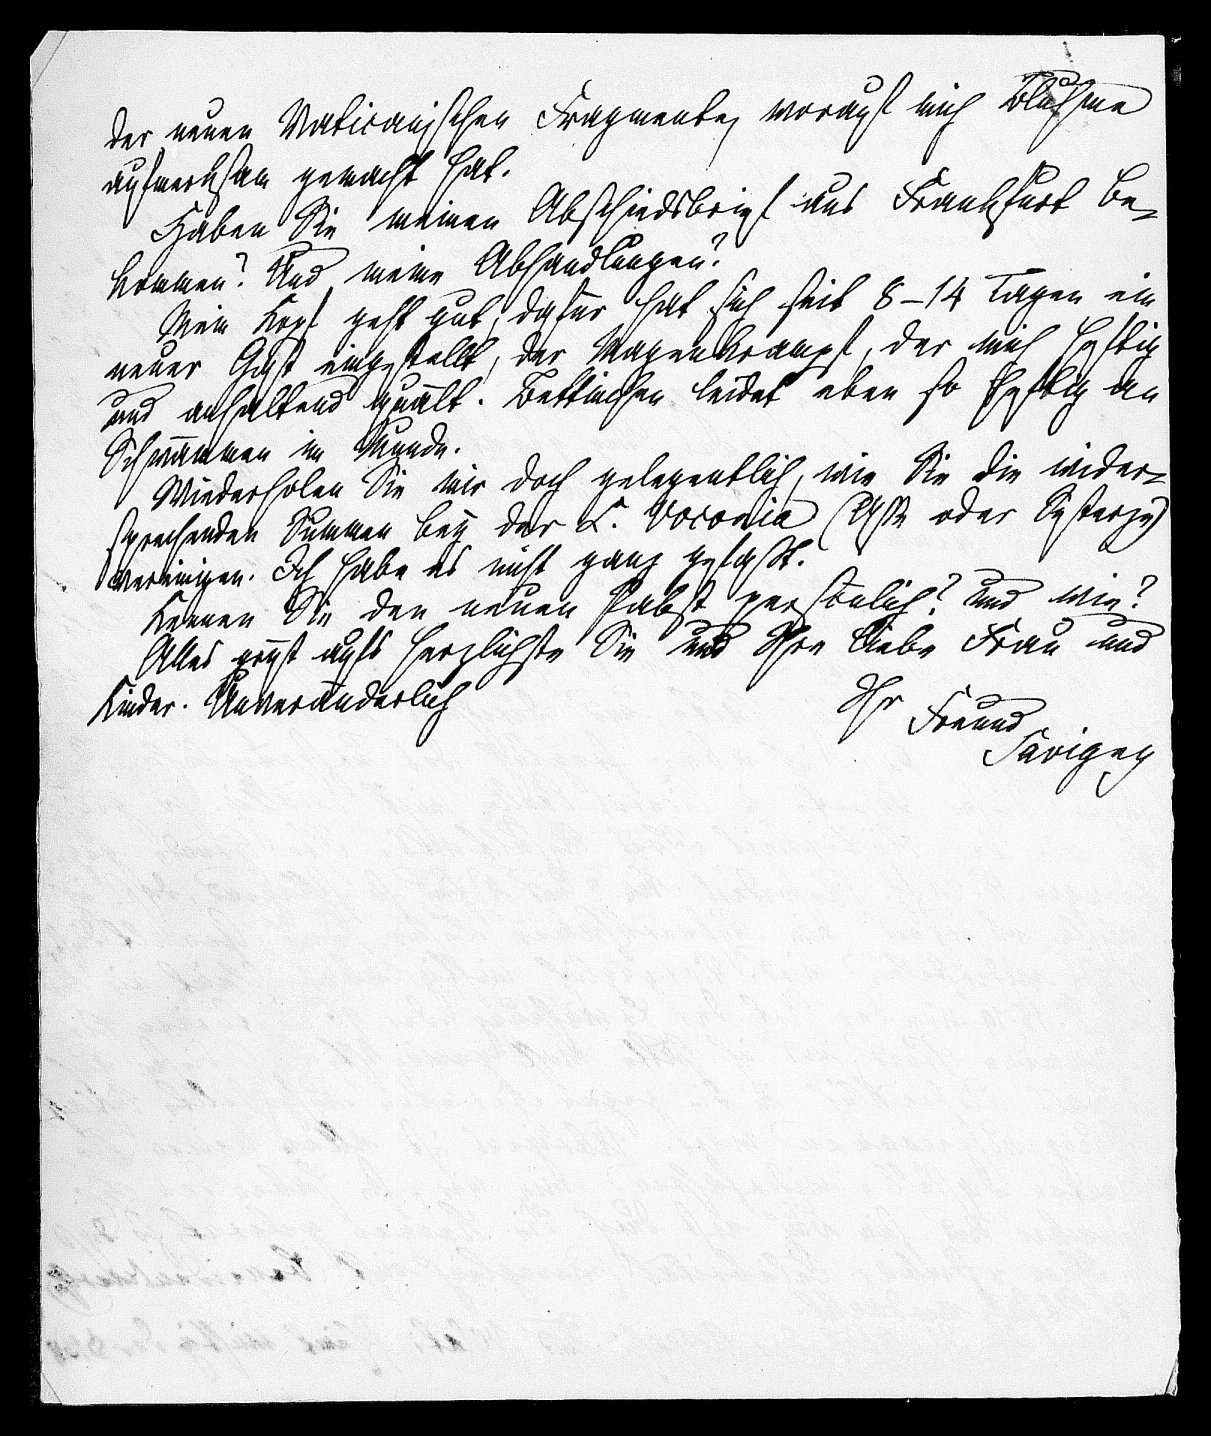 der neuen Vaticanischen Fragmente, worauf mich Bluhme
aufmerksam gemacht hat.
Haben Sie meinen Abschiedsbrief aus Frankfurt be-
kommen? Und meine Abhandlungen?
Mein Kopf geht gut, dafür hat sich seit 8-14 Tagen ein
neuer Gast eingestellt, der Magenkrampf, der mich heftig
und anhaltend quält. Bettinchen leidet eben so heftig an
Schwämmen im Munde.
Wiederholen Sie mir doch gelegentlich, wie Sie die wider-
sprechenden Summen bey der L. Voconia (Asse oder Sesterze)
vereinigen. Ich habe es nicht ganz gefaßt.
Kennen Sie den neuen Pabst persönlich? und wie?
Alles grüßt aufs herzlichste Sie und Ihre liebe Frau und
Kinder. Unveränderlich
Ihr Freund
Savigny